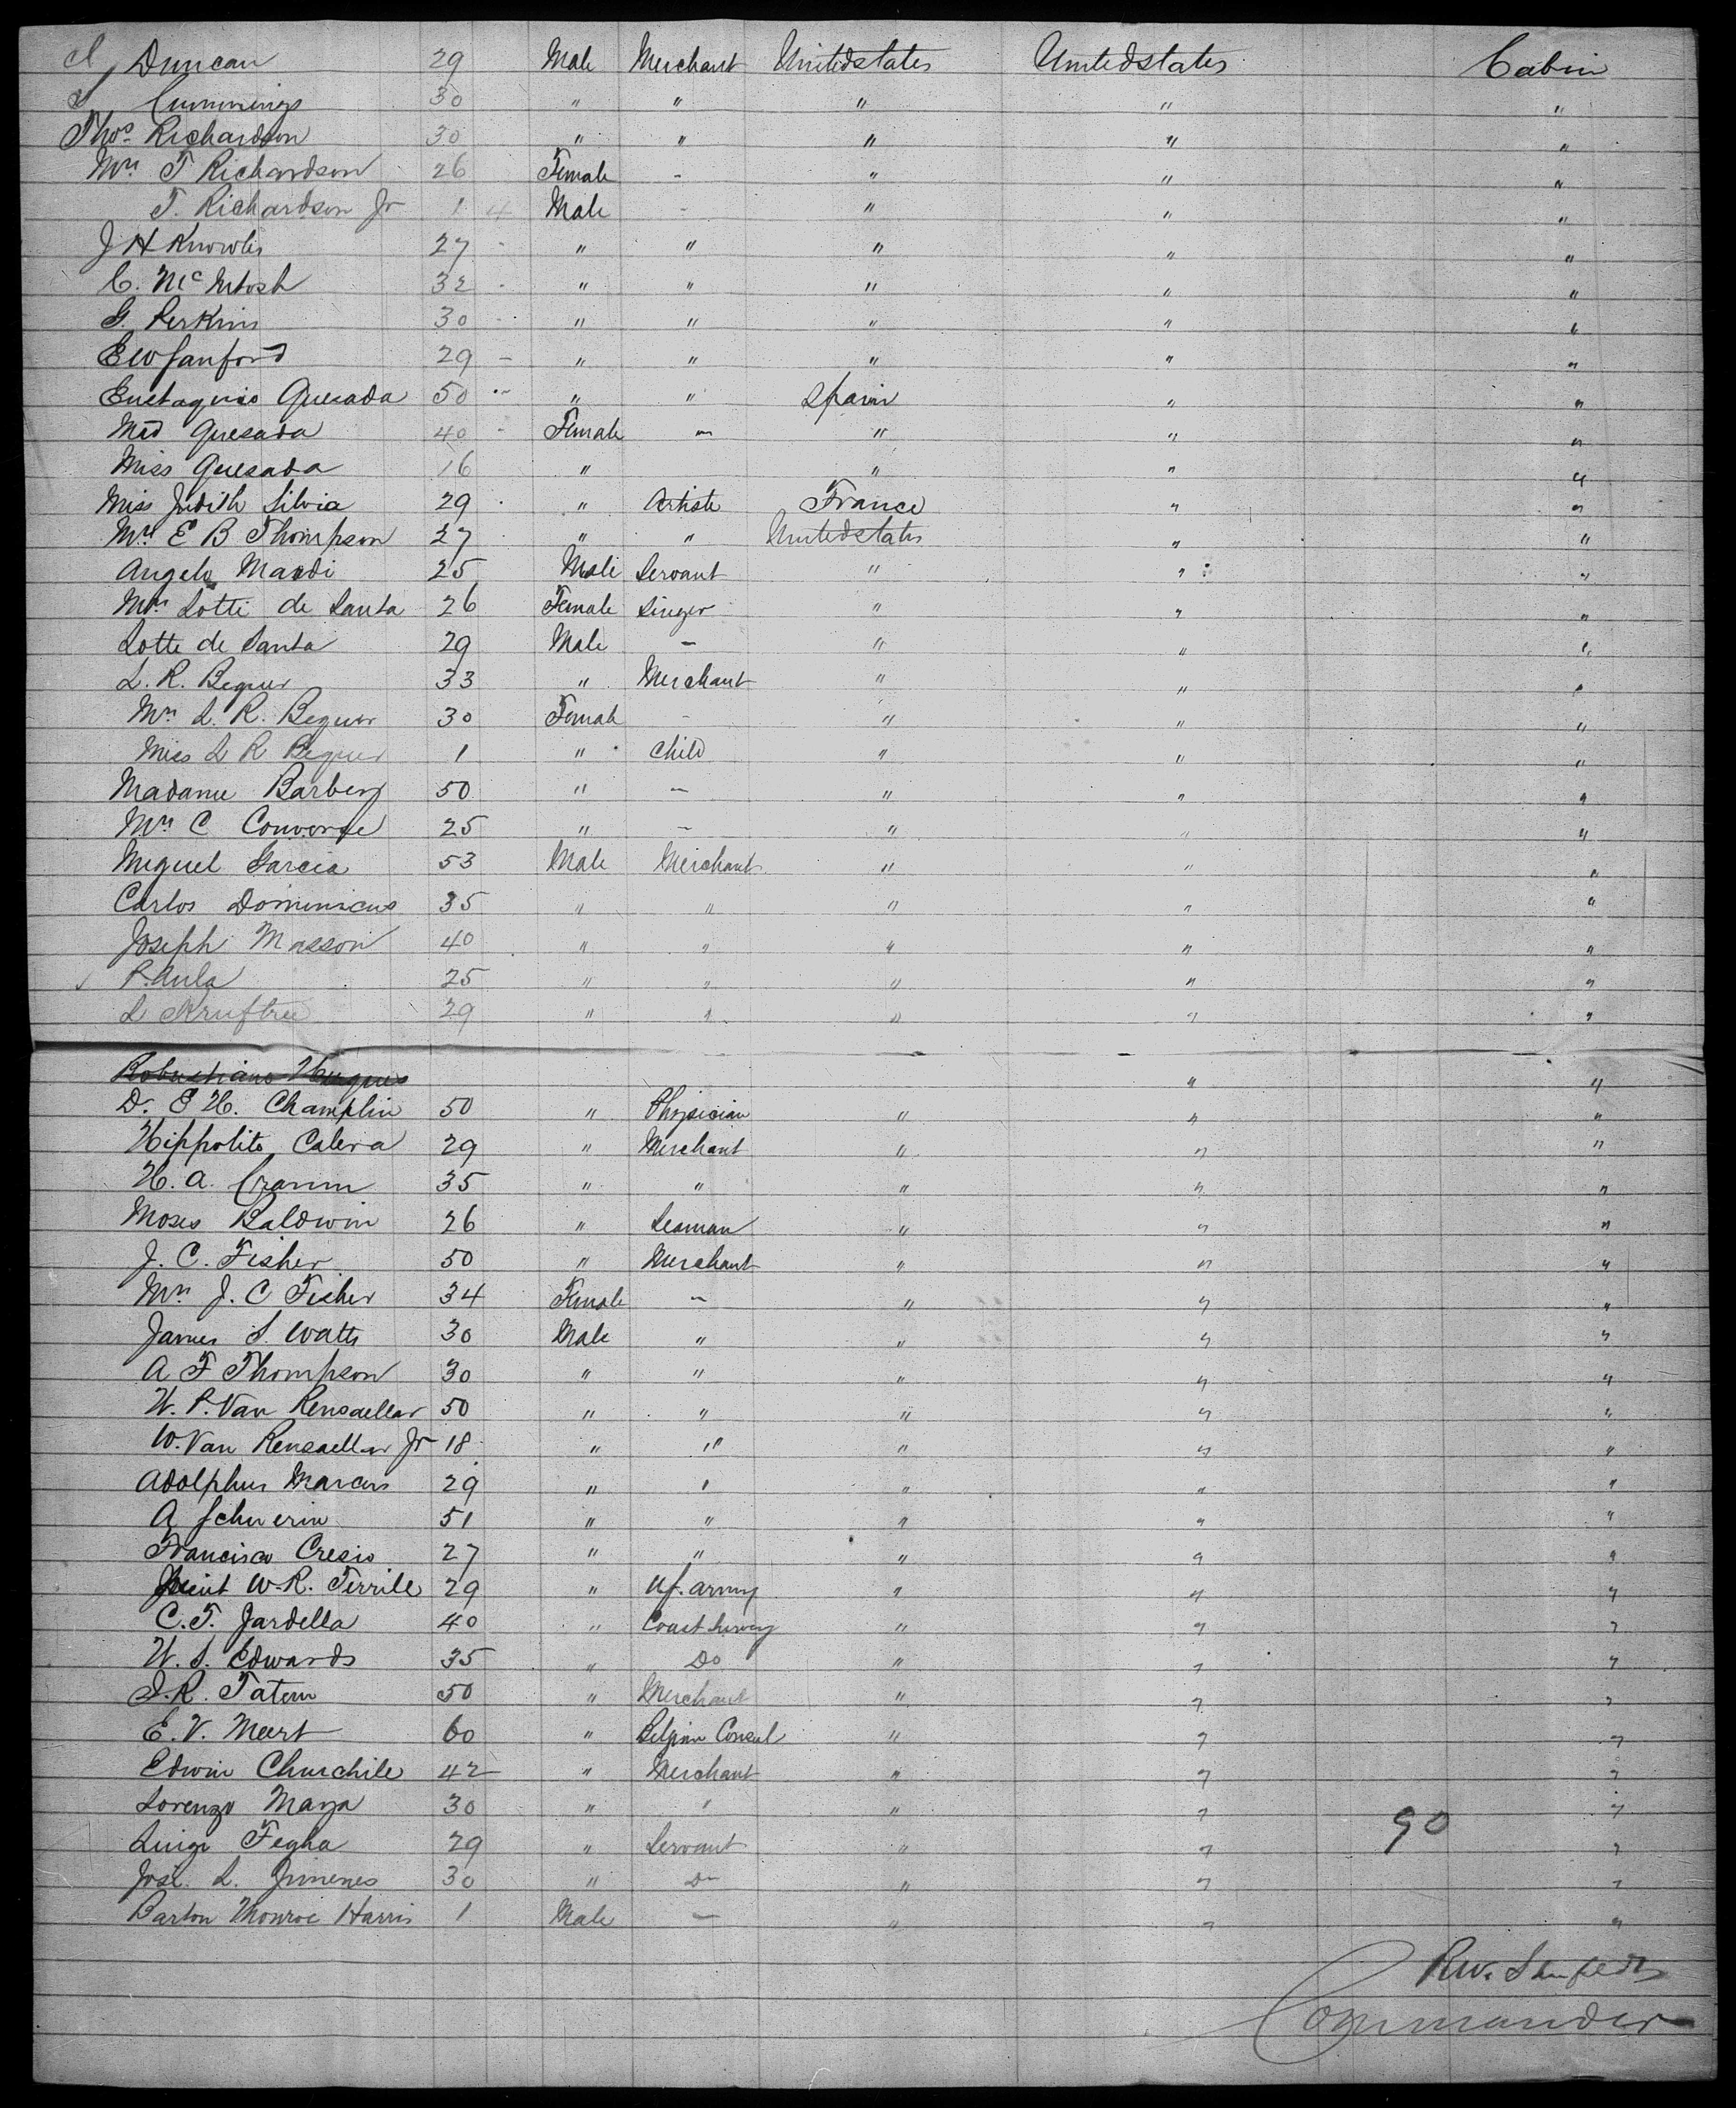 Duncan 29 Male Merchant Unitedstates Unitedstates Cabin
Cummings 30 " " " " "
Thos Richardson 30 " " " " "
Mrs T Richardson 26 Female - " " "
T. Richardson Jr 1 4 Male - " " "
J H Knowles 27 - " " " " "
C. McIntosh 32 - " " " " "
G. Perkins 30 - " " " " "
E W Sanford 29 - " " " " "
Eustaquio Quesada 50 - " " Spain " "
Mad Quesada 40 - Female - " " "
Miss Quesada 16 " " " "
Miss Judith Silvia 29 " Artiste France " "
Mrs E B Thompson 27 " " Unitedstates " "
Angelo Mardi 25 Male Servant " " "
Mrs Lotti de Santa 26 Female Singer " " "
Lotte de Santa 29 Male - " " "
L. R. Beguer 33 " Merchant " " "
Mrs L. R. Beguer 30 Female - " " "
Miss L R Beguer 1 " Child " " "
Madame Barbery 50 " - " " "
Mrs C Converse 25 " - " " "
Miguel Garcia 53 Male Merchant " " "
Carlos Dominicus 35 " " " " "
Joseph Masson 40 " " " " "
P. Aula 25 " " " " "
L 29 " " " " "
Robustiano " "
Dr. E H. Champlin 50 " Physician " " "
Hippolito Calera 29 " Merchant " " "
H. A. Cramm 35 " " " " "
Moses Baldwin 26 " Seaman " " "
J. C. Fisher 50 " Merchant " " "
Mrs J. C Fisher 34 Female - " " "
James S. Watts 30 Male " " " "
A F Thompson 30 " " " " "
W. P. Van Rensaellar 50 " " " " "
W. Van Rensaellar Jr 18 " " " " "
Adolphus Marcus 29 " " " " "
A Schwerin 51 " " " " "
Francisco Cresio 27 " " " " "
Lieut W. R. Terrill 29 " U.S. army " " "
C. T. Jardella 40 " Coast Survey " " "
W. S. Edwards 35 " Do " " "
J. R. Tatem 50 " Merchant " " "
E. V. Meert 60 " Belgian Consul " " "
Edwin Churchile 42 " Merchant " " "
Lorenzo Maya 30 " " " " 90 "
Luigi Fegha 29 " Servant " " "
José L. Jimenes 30 " Do " " "
Barton Monroe Harris 1 Male - " " "
R W.
Commander